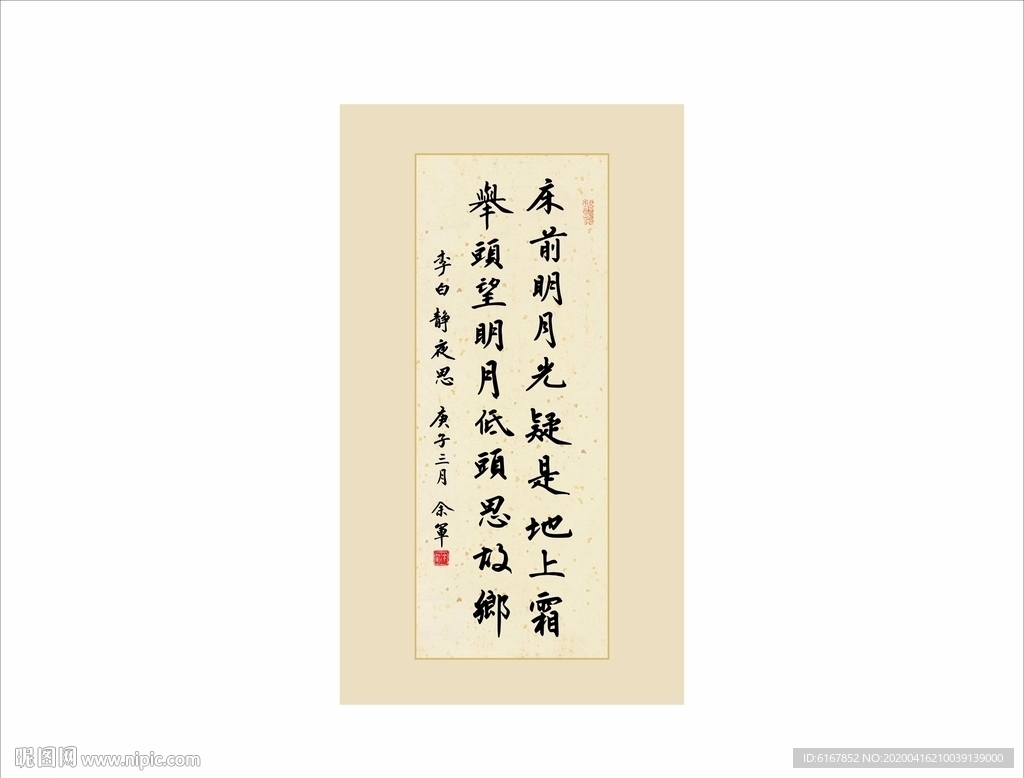 床前明月光疑是地上霜
舉頭望明月低頭思故鄉
李白靜夜思 庚子三月 余軍
昵图网 www.nipic.com
ID:6167852 NO:20200416210039139000